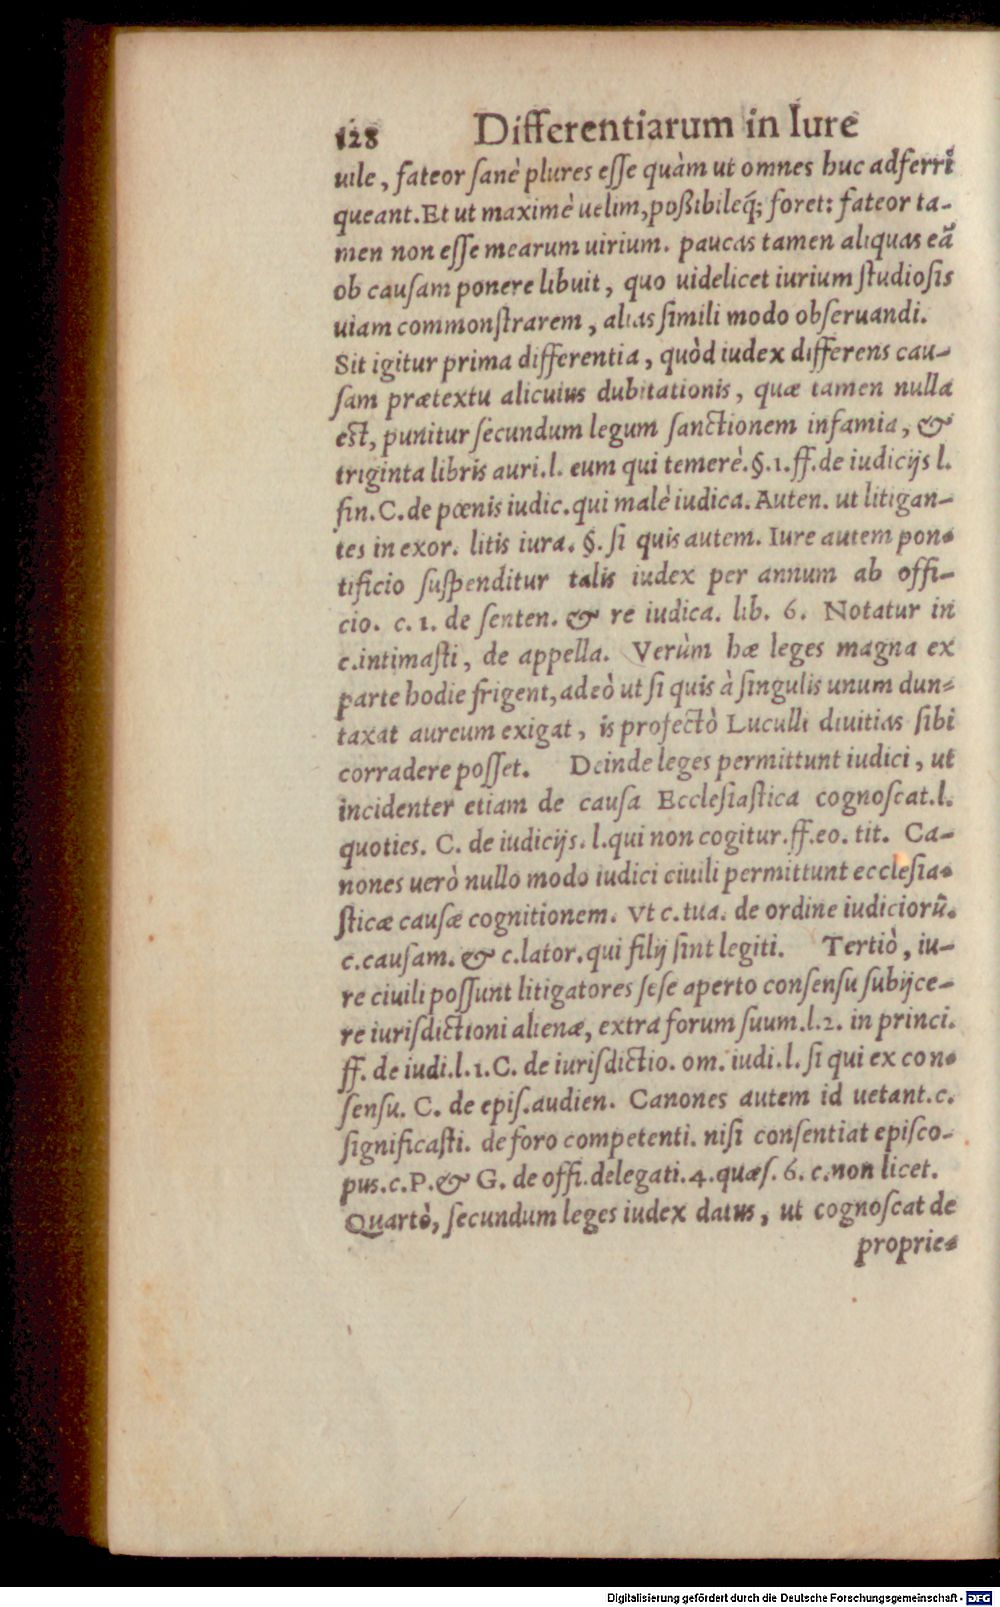 128 Differentiarum in Iure
uile, fateor sanè plures esse quàm ut omnes huc adferri
queant. Et ut maximè uelim, poßibileq́; foret: fateor ta-
men non esse mearum uirium. paucas tamen aliquas eã
ob causam ponere libuit, quo uidelicet iurium studiosis
uiam commonstrarem, alias simili modo obseruandi.
Sit igitur prima differentia, quòd iudex differens cau-
sam prætextu alicuius dubitationis, quæ tamen nulla
est, punitur secundum legum sanctionem infamia, &
triginta libris auri. l. eum qui temerè. §. 1. ff. de iudicijs l.
fin. C. de pœnis iudic. qui malè iudica. Auten. ut litigan-
tes in exor. litis iura. §. si quis autem. Iure autem pon-
tificio suspenditur talis iudex per annum ab offi-
cio. c. 1. de senten. & re iudica. lib. 6. Notatur in
c. intimasti, de appella. Verùm hæ leges magna ex
parte hodie frigent, adeò ut si quis à singulis unum dun-
taxat aureum exigat, is profectò Luculli diuitias sibi
corradere posset. Deinde leges permittunt iudici, ut
incidenter etiam de causa Ecclesiastica cognoscat. l.
quoties. C. de iudicijs. l. qui non cogitur. ff. eo. tit. Ca-
nones uerò nullo modo iudici ciuili permittunt ecclesia-
sticæ causæ cognitionem. Vt c. tua. de ordine iudiciorũ.
c. causam. & c. lator. qui filij sint legiti. Tertiò, iu-
re ciuili possunt litigatores sese aperto consensu subijce-
re iurisdictioni alienæ, extra forum suum. l. 2. in princi.
ff. de iudi. l. 1. C. de iurisdictio. om. iudi. l. si qui ex con-
sensu. C. de epis. audien. Canones autem id uetant. c.
significasti. de foro competenti. nisi consentiat episco-
pus. c. P. & G. de offi. delegati. 4. quæs. 6. c. non licet.
Quartò, secundum leges iudex datus, ut cognoscat de
proprie-
Digitalisierung gefördert durch die Deutsche Forschungsgemeinschaft - DFG